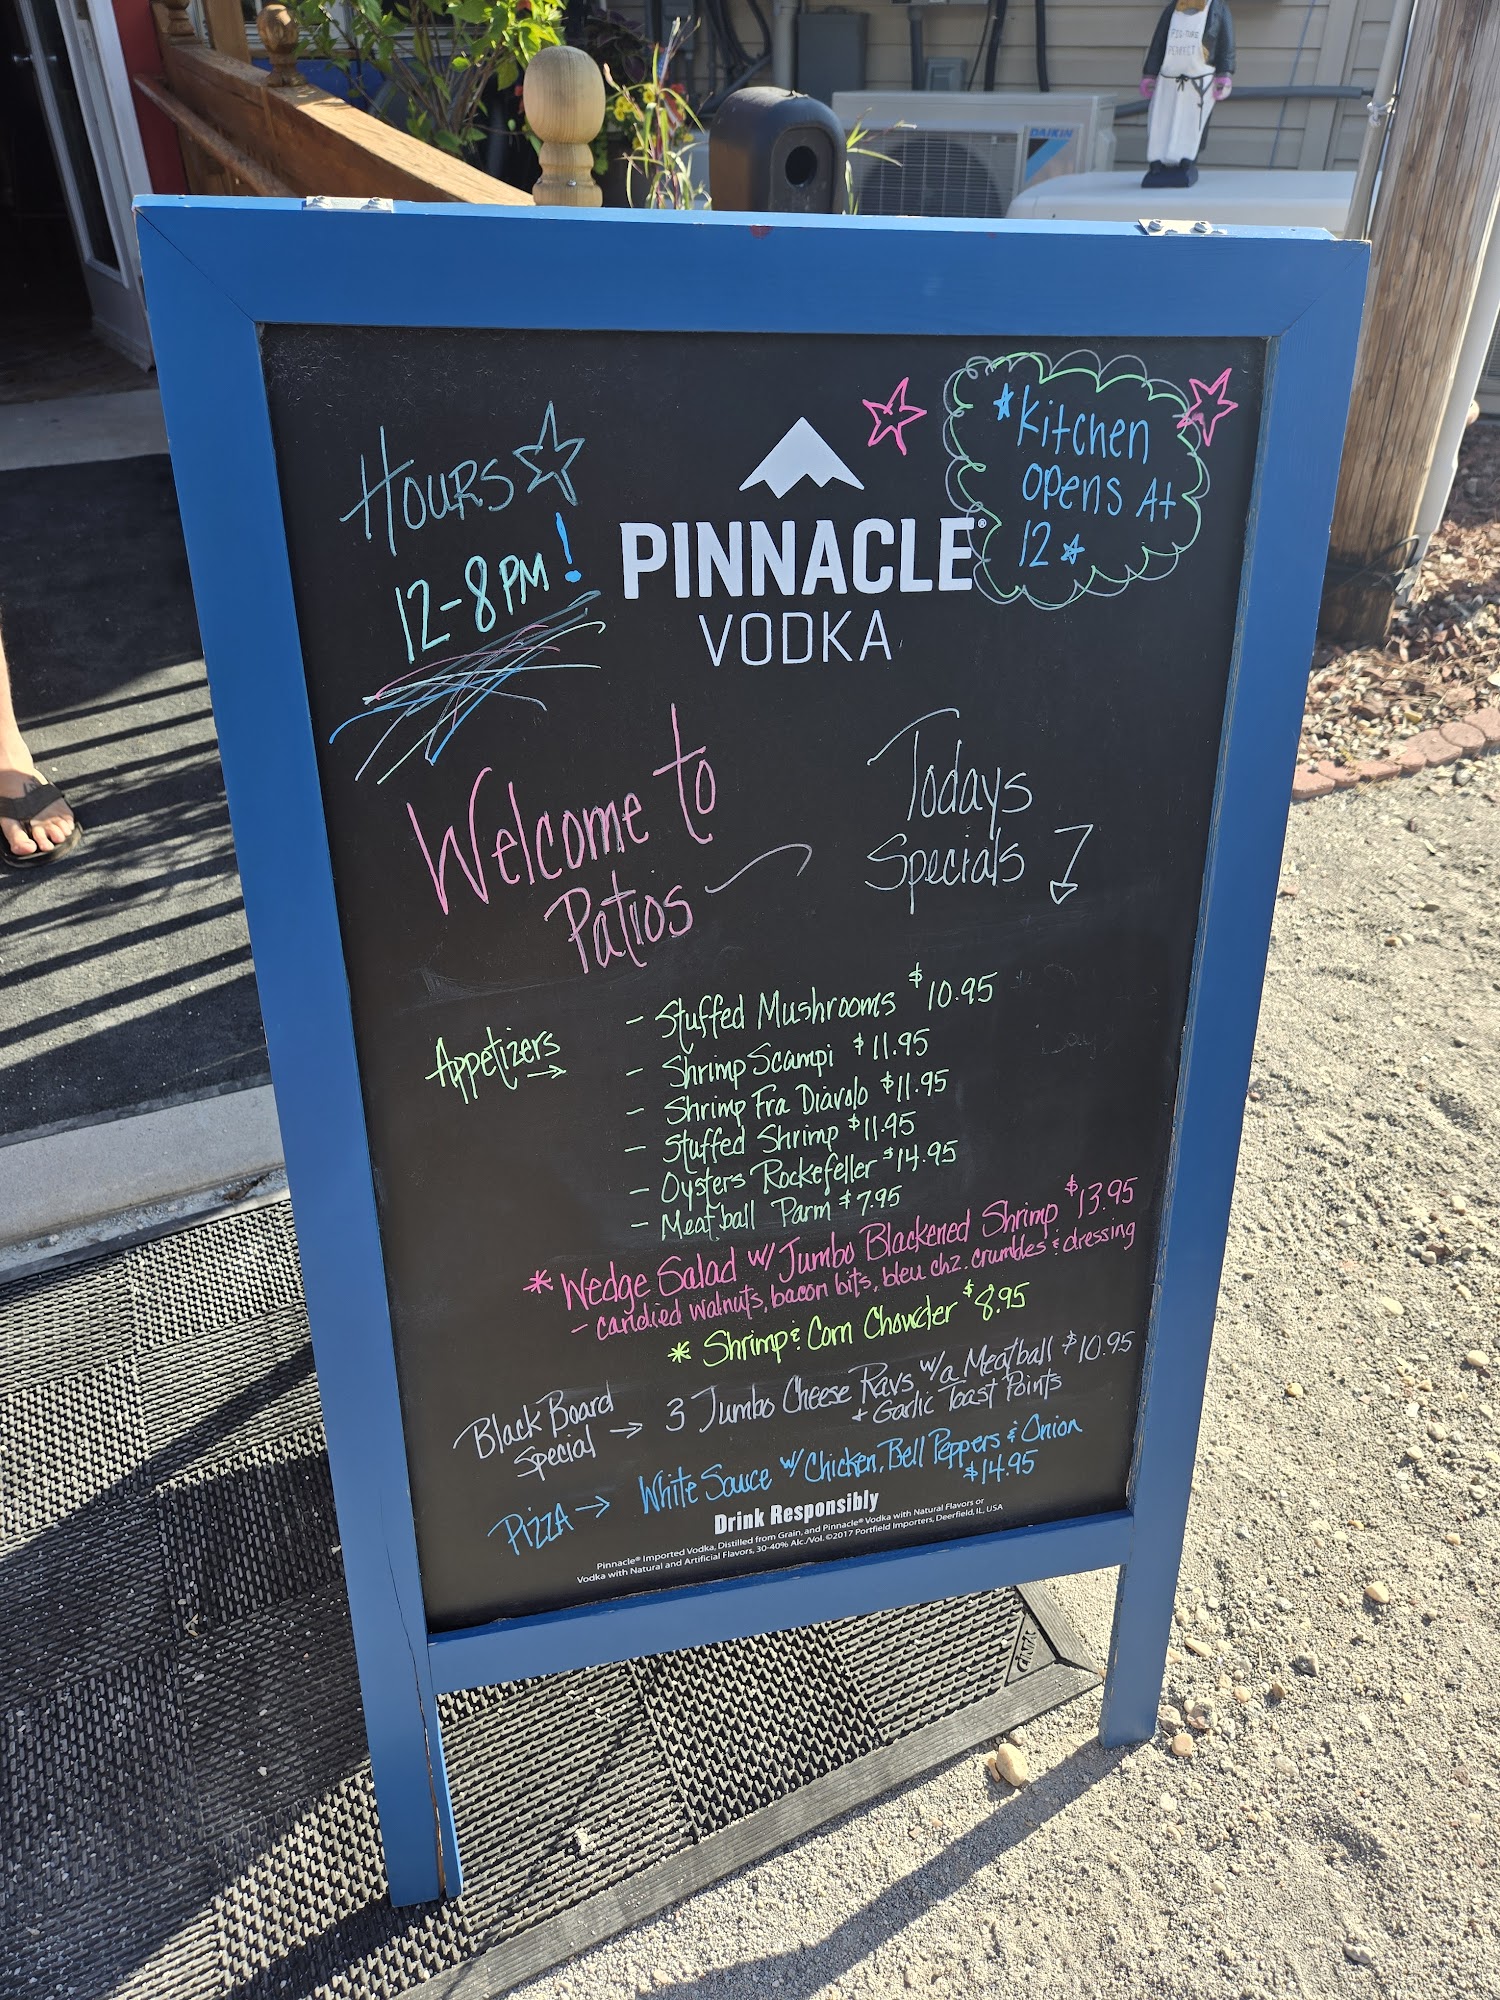 PIG-TURE
PERFECT
DAIKIN
HOURS
12-8PM!
PINNACLE®
VODKA
*Kitchen
opens At
12*
Welcome to
Patios
Todays
Specials
Appetizers →
- Stuffed Mushrooms $10.95
- Shrimp Scampi $11.95
- Shrimp Fra Diavolo $11.95
- Stuffed Shrimp $11.95
- Oysters Rockefeller $14.95
- Meatball Parm $7.95
* Wedge Salad w/ Jumbo Blackened Shrimp $13.95
- candied walnuts, bacon bits, bleu chz. crumbles & dressing
* Shrimp & Corn Chowder $8.95
Black Board
Special → 3 Jumbo Cheese Ravs w/a Meatball $10.95
+ Garlic Toast Points
Pizza → White Sauce w/ Chicken, Bell Peppers & Onion
$14.95
Drink Responsibly
Pinnacle® Imported Vodka, Distilled from Grain, and Pinnacle® Vodka with Natural Flavors or
Vodka with Natural and Artificial Flavors, 30-40% Alc./Vol. ©2017 Portfield Importers, Deerfield, IL, USA